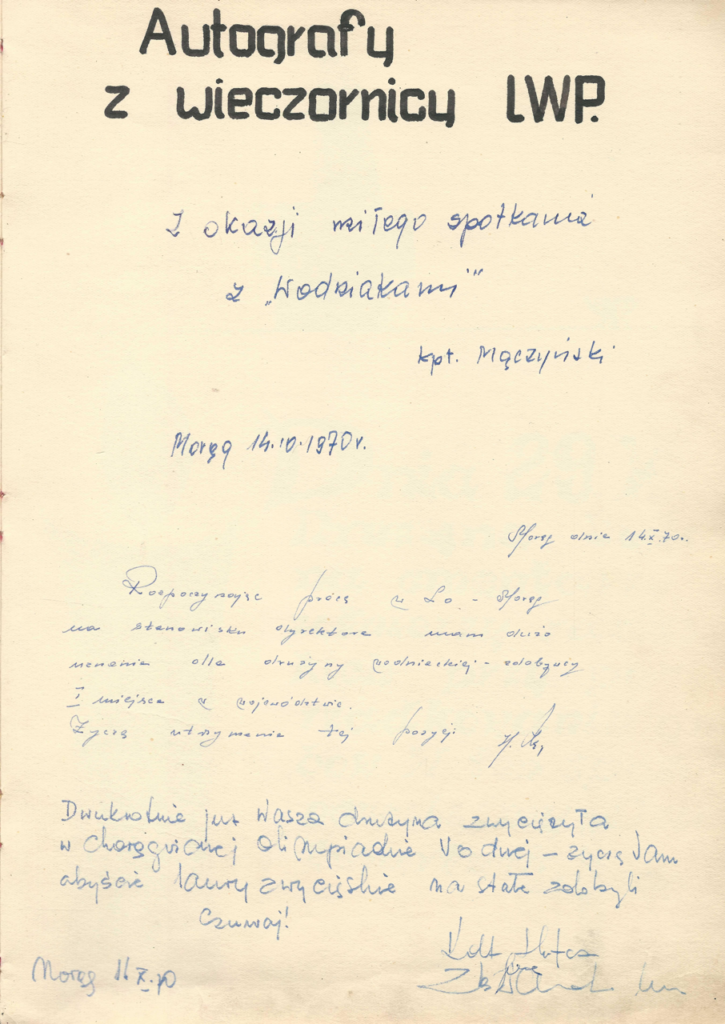 Autografy
z wieczornicy LWP.
Z okazji miłego spotkania
z „Wodniakami”
kpt. Mączyński
Morąg 14.10.1970r.
Morąg dnia 14.X.70r.
Rozpoczynając pracę w Lo - Morąg
na stanowisku dyrektora mam dużo
uznania dla drużyny wodniackiej - zdobywcy
I miejsca w województwie.
Życzę utrzymania tej pozycji
Dwukrotnie już Wasza drużyna zwyciężyła
w chorągwianej olimpiadzie Wodnej - życzę Wam
abyście laury zwycięskie na stałe zdobyli
Czuwaj!
Morąg X.70